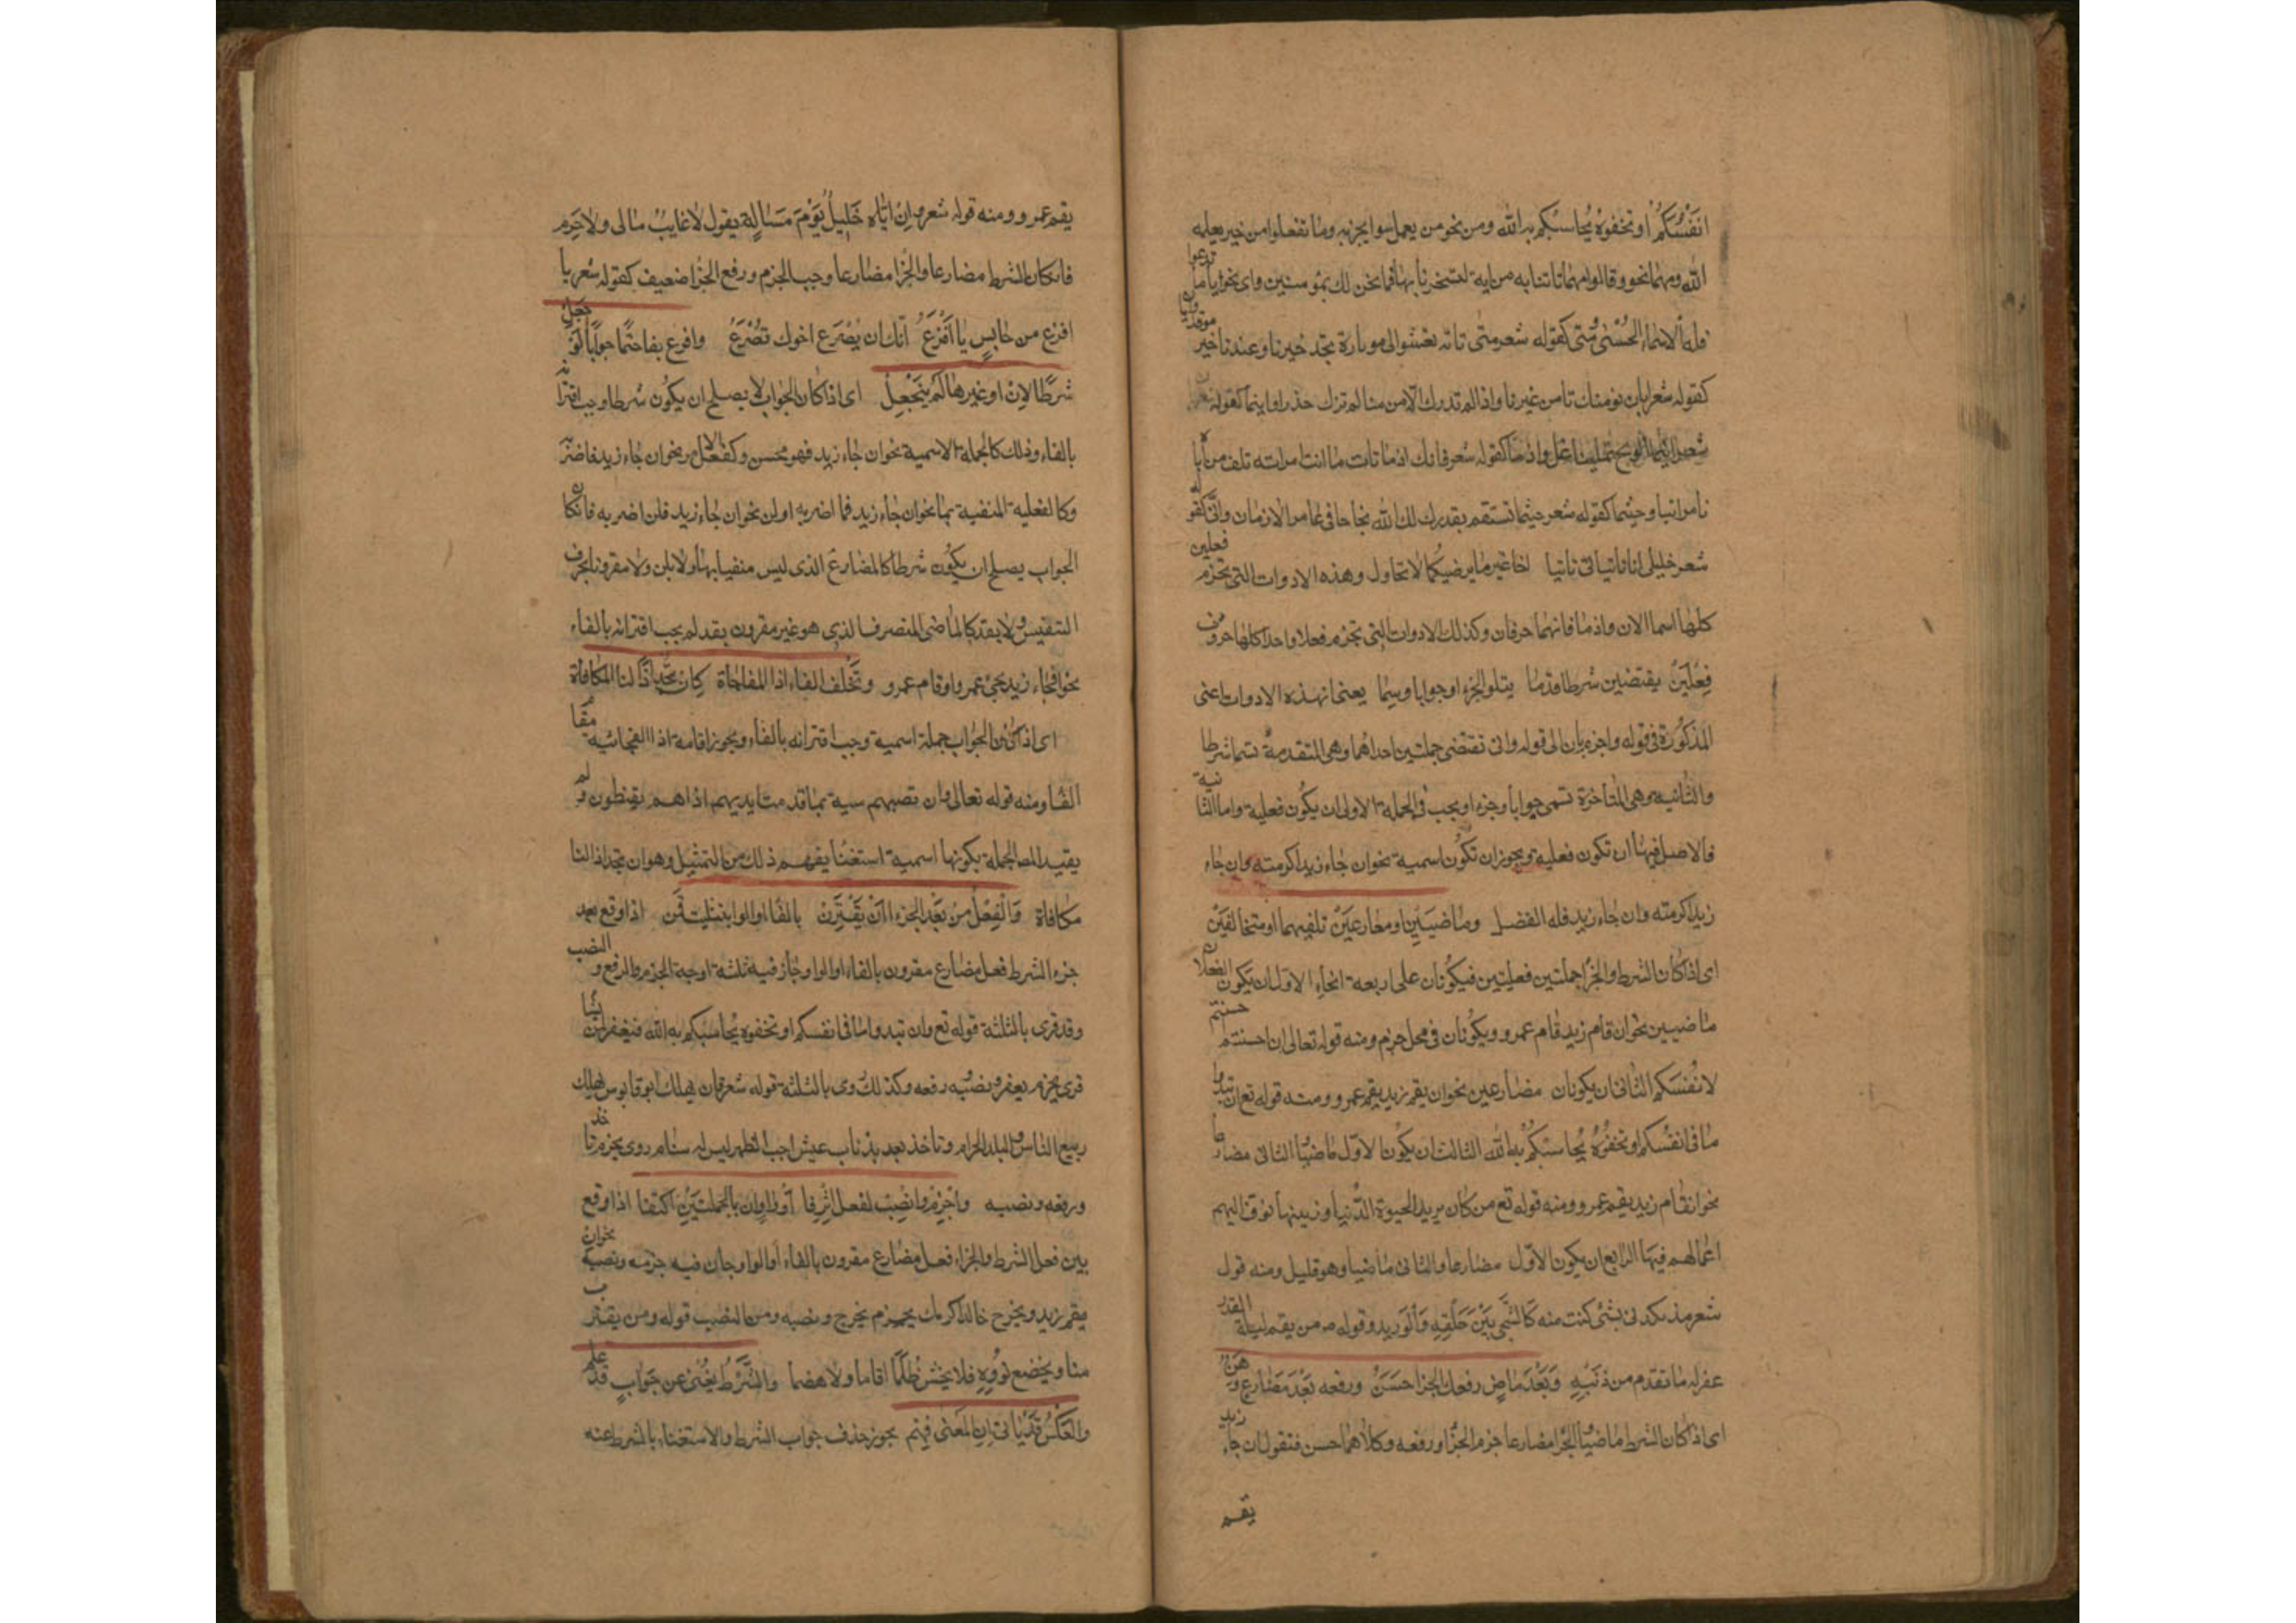 انفسكم او تخفوه يحاسبكم به الله ومن نحو من يعمل سوا يجز به وما تفعلوا من خير يعلمه
الله ومهما نحو وقالوا مهما تاتنا به من اية لتسحرنا بها فما نحن لك بمومنين واي نحو ايا ما تدعوا
فله الاسماء الحسنى ومتى كقوله شعر متى تاته تعشوا الى ضوء ناره تجد خير نار عندها خير موقد وايا
كقوله شعر ايان نومنك تامن غيرنا واذا لم تدرك الامن منا لم تزل حذرا واينما كقوله
شعر اينما الريح تميلها تمل واذ ما كقوله شعر فانك اذ ما تات ما انت امر به تلف من اياه
تامر اتيا وحيثما كقوله شعر حيثما تستقم يقدر لك الله نجاحا في غابر الازمان وانى كقو
شعر خليلي انى تاتياني تاتيا اخا غير ما يرضيكما لا تحاول وهذه الادوات التي تجزم فعلين
كلها اسما الا ان واذ ما فانهما حرفان وكذلك الادوات التي تجزم فعلا واحدا كلها حروف
فعلين يقتضين شرط قدما يتلو الجزاء وجوابا وسما يعني ان هذه الادوات اعني
المذكورة في قوله واجزم بان الى قوله وانى تقتضي جملتين احداهما وهي المتقدمة تسما شرطا
والثانية وهي المتاخرة تسمى جوابا وجزء او يجب في الجملة الاولى ان يكون فعلية واما الثانية
فالاصل فيها ان تكون فعلية ويجوز ان تكون اسمية نحو ان جاء زيد اكرمته وان جاء
زيد اكرمته وان جاء زيد فله الفضل وماضيين او مضارعين تلفيهما او متخالفين
اي اذا كان الشرط والجزا جملتين فعليتين فيكونان على اربعة انحاء الاول ان يكون الفعلان
ماضيين نحو ان قام زيد قام عمرو ويكونان في محل جزم ومنه قوله تعالى ان احسنتم احسنتم
لانفسكم الثاني ان يكونان مضارعين نحو ان يقم زيد يقم عمرو ومنه قوله تع ان تبدوا
ما في انفسكم او تخفوه يحاسبكم به الله الثالث ان يكون الاول ماضيا الثاني مضارعا
نحو ان قام زيد يقم عمرو ومنه قوله تع من كان يريد الحيوة الدنيا وزينتها نوف اليهم
اعمالهم فيها الرابع ان يكون الاول مضارعا والثاني ماضيا وهو قليل ومنه قول
شعر من يكدني بشئ كنت منه كالشجى بين حلقه والوريد وقوله ص من يقم ليلة القدر
غفر له ما تقدم من ذنبه وبعد ماض رفعك الجزا حسن ورفعه بعد مضارع وهن
اي اذا كان الشرط ماضيا الجزا مضارعا جزم الجزا ورفعه وكلاهما حسن فتقول ان جاء زيد
يقم
يقم عمرو ومنه قوله شعر وان اتاه خليل يوم مسالة يقول لا غايب مالي ولا حرم
فان كان الشرط مضارعا والجزا مضارعا وجب الجزم ورفع الجزا ضعيف كقوله شعر يا
اقرع من حابس يا اقرع انك ان يصرع اخوك تصرع واقرن بفا حتما جوابا لو جعل
شرطا لان او غيرها لم ينجعل اي اذا كان الجواب لا يصلح ان يكون شرطا وجب اقترانه
بالفاء وذلك كالجملة الاسمية نحو ان جاء زيد فهو محسن وكفعل الامر نحو ان جاء زيد فاضربه
وكالفعلية المنفية بما نحو ان جاء زيد فما اضربه او لن نحو ان جاء زيد فلن اضربه فان كان
الجواب يصلح ان يكون شرطا كالمضارع الذي ليس منفيا بها ولا بلن ولا مقرونا بحرف
التنفيس ولا بقد كالماضي المتصرف الذي هو غير مقرون بقد لم يجب اقترانه بالفاء
نحو ان جاء زيد يجئ عمرو او قام عمرو وتخلف الفاء اذا المفاجاة كان تجد اذا لنا المكافاة
اي اذا كان الجواب جملة اسمية وجب اقترانه بالفاء ويجوز اقامة اذا الفجائية مقام
الفا ومنه قوله تعالى وان تصبهم سيئة بما قدمت ايديهم اذا هم يقنطون ولم
يقيد المص الجملة بكونها اسمية استغنا بفهم ذلك من التمثيل وهو ان تجد اذا لنا
مكافاة والفعل من بعد الجزا ان يقترن بالفا او الواو بتثليث قمن اذا وقع بعد
جزء الشرط فعل مضارع مقرون بالفاء او الواو جاز فيه ثلثة اوجه الجزم والرفع والنصب
وقد قرى بالثلثة قوله تع وان تبدوا ما في انفسكم او تخفوه يحاسبكم به الله فيغفر لمن يشا
قرى بجزم يغفر ونصبه رفعه وكذلك روى بالثلثة قوله شعر فان يهلك ابو قابوس يهلك
ربيع الناس والبلد الحرام وناخذ بعد بذناب عيش اجب الظهر ليس له سنام روى بجزم ناخذ
ورفعه ونصبه واجزم او نصب لفعل اثر فا او واو ان بالجملتين اكتنفا اذا وقع
بين فعل الشرط والجزاء فعل مضارع مقرون بالفاء او الواو جاز فيه جزمه ونصبه نحو ان
يقم زيد ويخرج خالد اكرمك بجزم يخرج ونصبه ومن النصب قوله ومن يقترب
منا ويخضع نؤوه فلا يخش ظلما اقاما ولا هضما والشرط يغني عن جواب قد علم
والعكس قد ياتي ان المعنى فهم يجوز حذف جواب الشرط والاستغناء بالشرط عنه